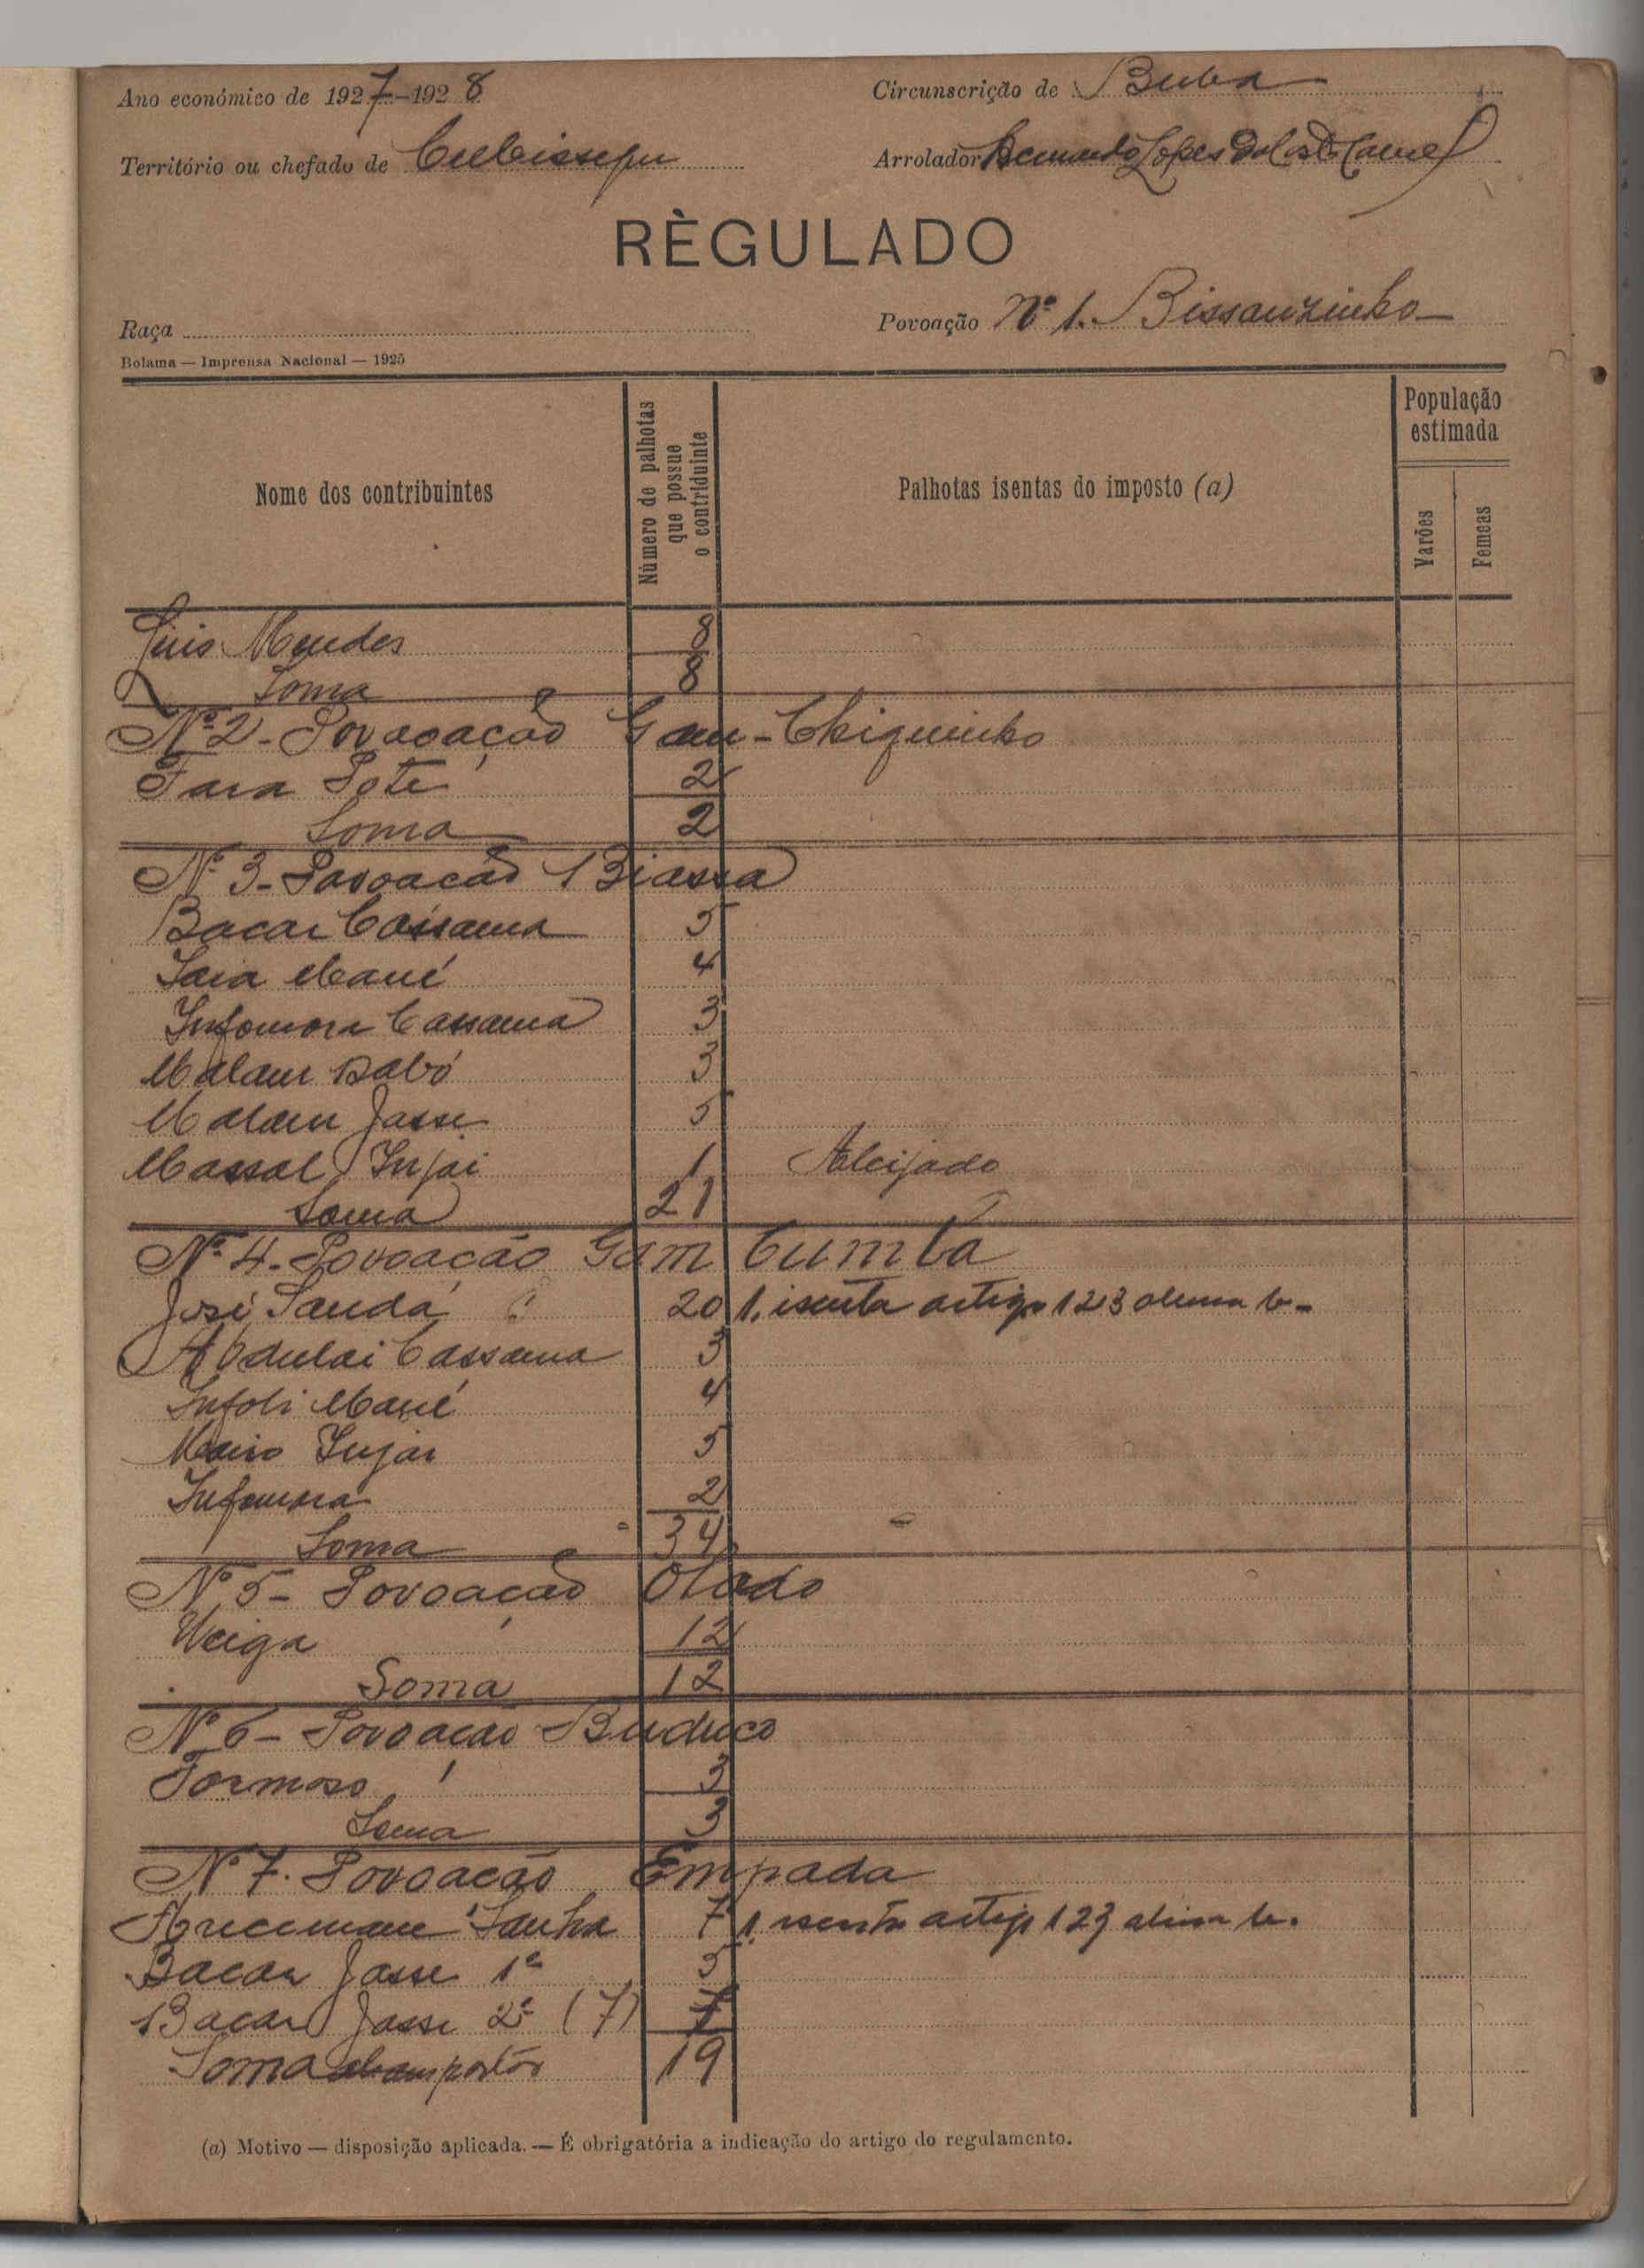 Ano económico de 1927-1928
Circunscrição de Buba
Território ou chefado de Cubisseque
Arrolador Bernardo Lopes da Costa
RÈGULADO
Raça
Povoação Nº 1. Bissauzinho
Bolama — Imprensa Nacional — 1925
Nome dos contribuintes
Número de palhotas que possue o contriduinte
Palhotas isentas do imposto (a)
População estimada
Varões
Femeas
Luis Mendes 8
Soma 8
Nº 2 - Povoação Gan-Chiquinho
Fara Soté 2
Soma 2
Nº 3 - Povoação Biassa
Bacar Cassama 5
Saia Mané 4
Infomora Cassama 3
Malam Dabó 3
Malam Jassi 5
Massal Injai 1 Aleijado
Soma 21
Nº 4. Povoação Gam Cumba
José Sanda 20 1. isenta artigo 123 alinea b-
Abdulai Cassama 3
Infoli Mané 4
Injai 5
Infamara 2
Soma 34
Nº 5 - Povoação
Veiga 12
Soma 12
Nº 6 - Povoação Buduco
Formoso 3
Soma 3
Nº 7. Povoação Empada
Sanha 7 1. isenta artigo 123 alinea b.
Bacar Jassi 1º 5
Bacar Jassi 2º (7) 7
Soma 19
(a) Motivo — disposição aplicada. — É obrigatória a indicação do artigo do regulamento.